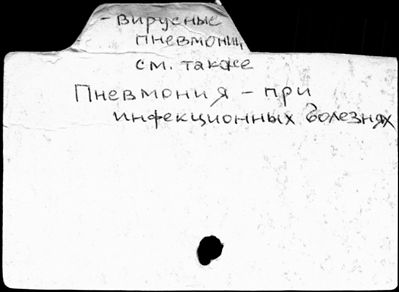 - Вирусные
пневмонии,
см. также
Пневмония - при
инфекционных болезнях